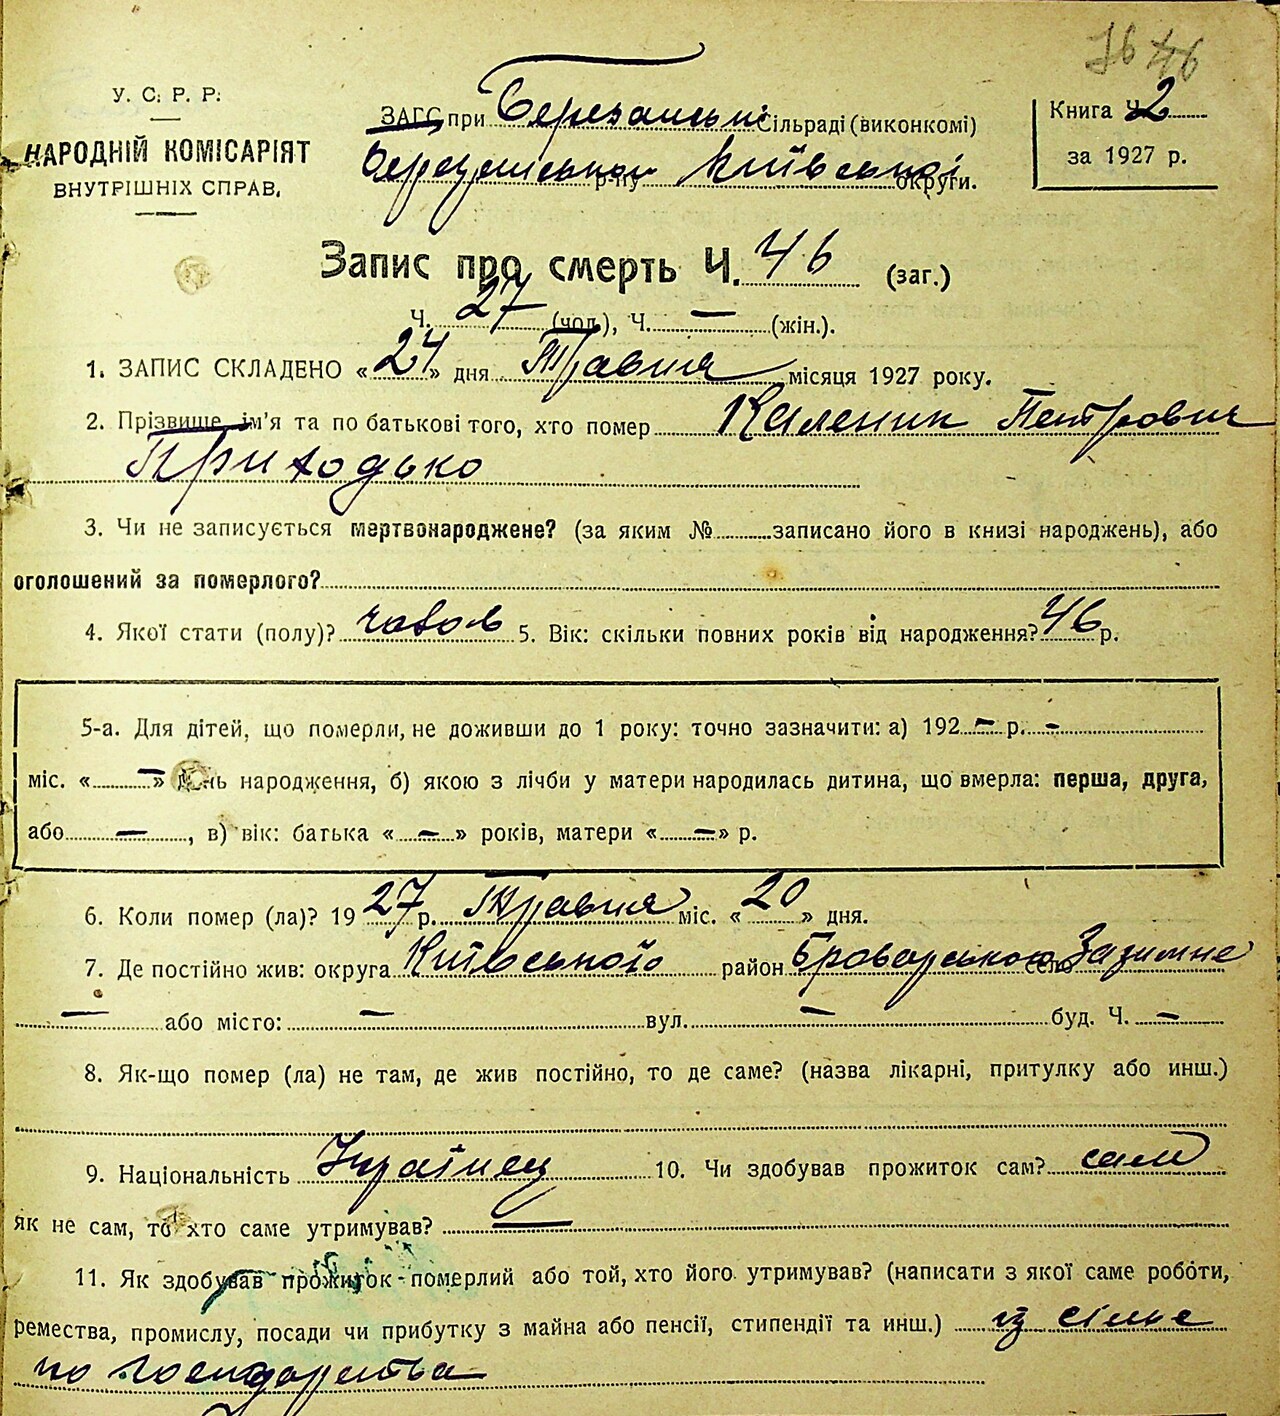 76 46
У. С. Р. Р.
НАРОДНІЙ КОМІСАРІЯТ
ВНУТРІШНІХ СПРАВ.
ЗАГС при Березанські Сільраді (виконкомі)
р-ну Київської округи.
Книга Ч. 2
за 1927 р.
Запис про смерть Ч. 46 (заг.)
Ч. 27 (чол.), Ч. — (жін.).
1. ЗАПИС СКЛАДЕНО « 24 » дня Травня місяця 1927 року.
2. Прізвище, ім'я та по батькові того, хто помер Каленик Петрович
Приходько
3. Чи не записується мертвонароджене? (за яким № записано його в книзі народжень), або
оголошений за померлого?
4. Якої стати (полу)? чолов 5. Вік: скільки повних років від народження? 46 р.
5-а. Для дітей, що померли, не доживши до 1 року: точно зазначити: а) 192 — р. —
міс. « — » день народження, б) якою з лічби у матери народилась дитина, що вмерла: перша, друга,
або —, в) вік: батька « — » років, матери « — » р.
6. Коли помер (ла)? 19 27 р. Травня міс. « 20 » дня.
7. Де постійно жив: округа Київського район Броварського село Зазимне
— або місто: — вул. — буд. Ч. —
8. Як-що помер (ла) не там, де жив постійно, то де саме? (назва лікарні, притулку або инш.)
9. Національність Українец 10. Чи здобував прожиток сам? сам
як не сам, то хто саме утримував? —
11. Як здобував прожиток померлий або той, хто його утримував? (написати з якої саме роботи,
ремества, промислу, посади чи прибутку з майна або пенсії, стипендії та инш.) із сільс
ко господарства